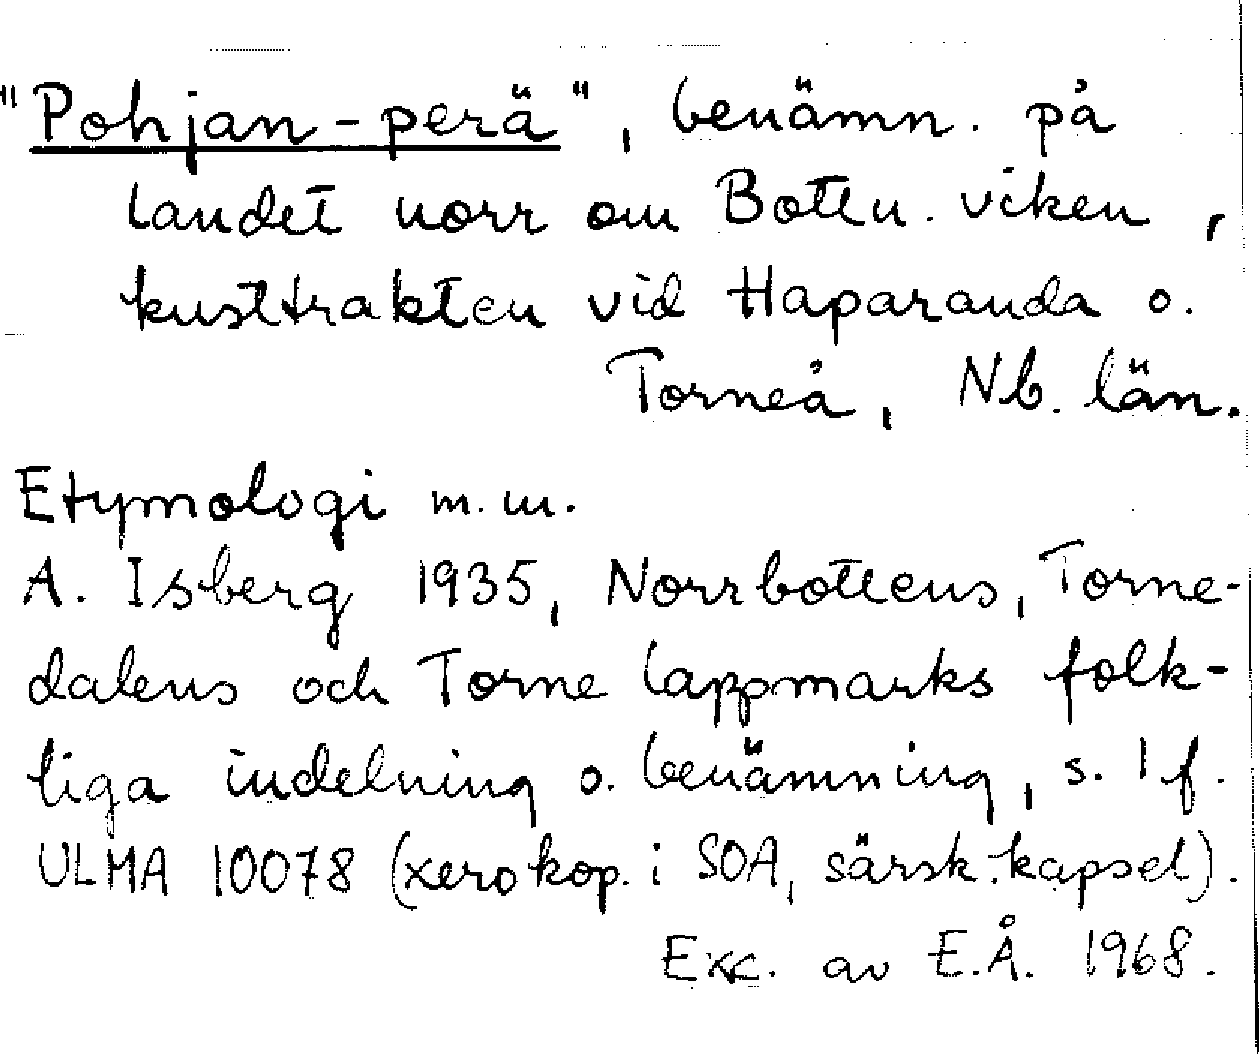 "Pohjan-perä", benämn. på
landet norr om Bottn. viken,
kusttrakten vid Haparanda o.
Torneå, Nb. län.
Etymologi m.m.
A. Isberg 1935, Norrbottens, Torne-
dalens och Torne lappmarks folk-
liga indelning o. benämning, s. 1 f.
ULMA 10078 (xerokop. i SOA, särsk. kapsel).
Exc. av E.Å. 1968.